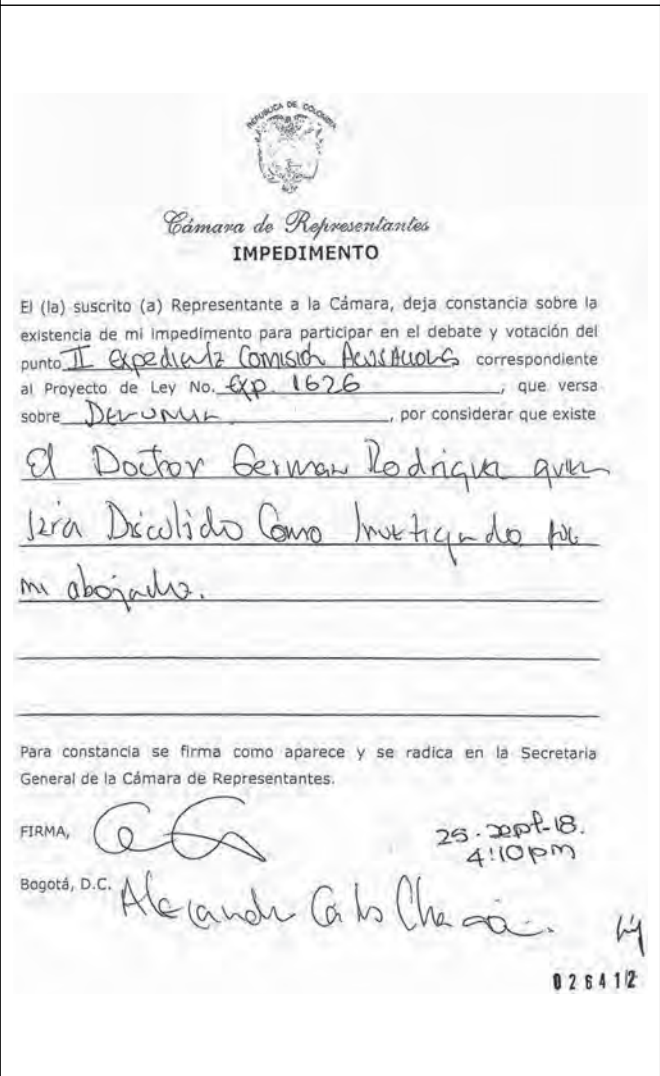 REPÚBLICA DE COLOMBIA
Cámara de Representantes
IMPEDIMENTO
El (la) suscrito (a) Representante a la Cámara, deja constancia sobre la
existencia de mi impedimento para participar en el debate y votación del
punto II Expediente Comisión Acusaciones correspondiente
al Proyecto de Ley No. Exp. 1626, que versa
sobre Denuncia, por considerar que existe
El Doctor German Rodriguez quien
será Discutido Como Investigado fue
mi abogado.
Para constancia se firma como aparece y se radica en la Secretaria
General de la Cámara de Representantes.
FIRMA,
25. Sept-18.
4:10pm
Bogotá, D.C. Alejandro Carlos Chacón.
026412